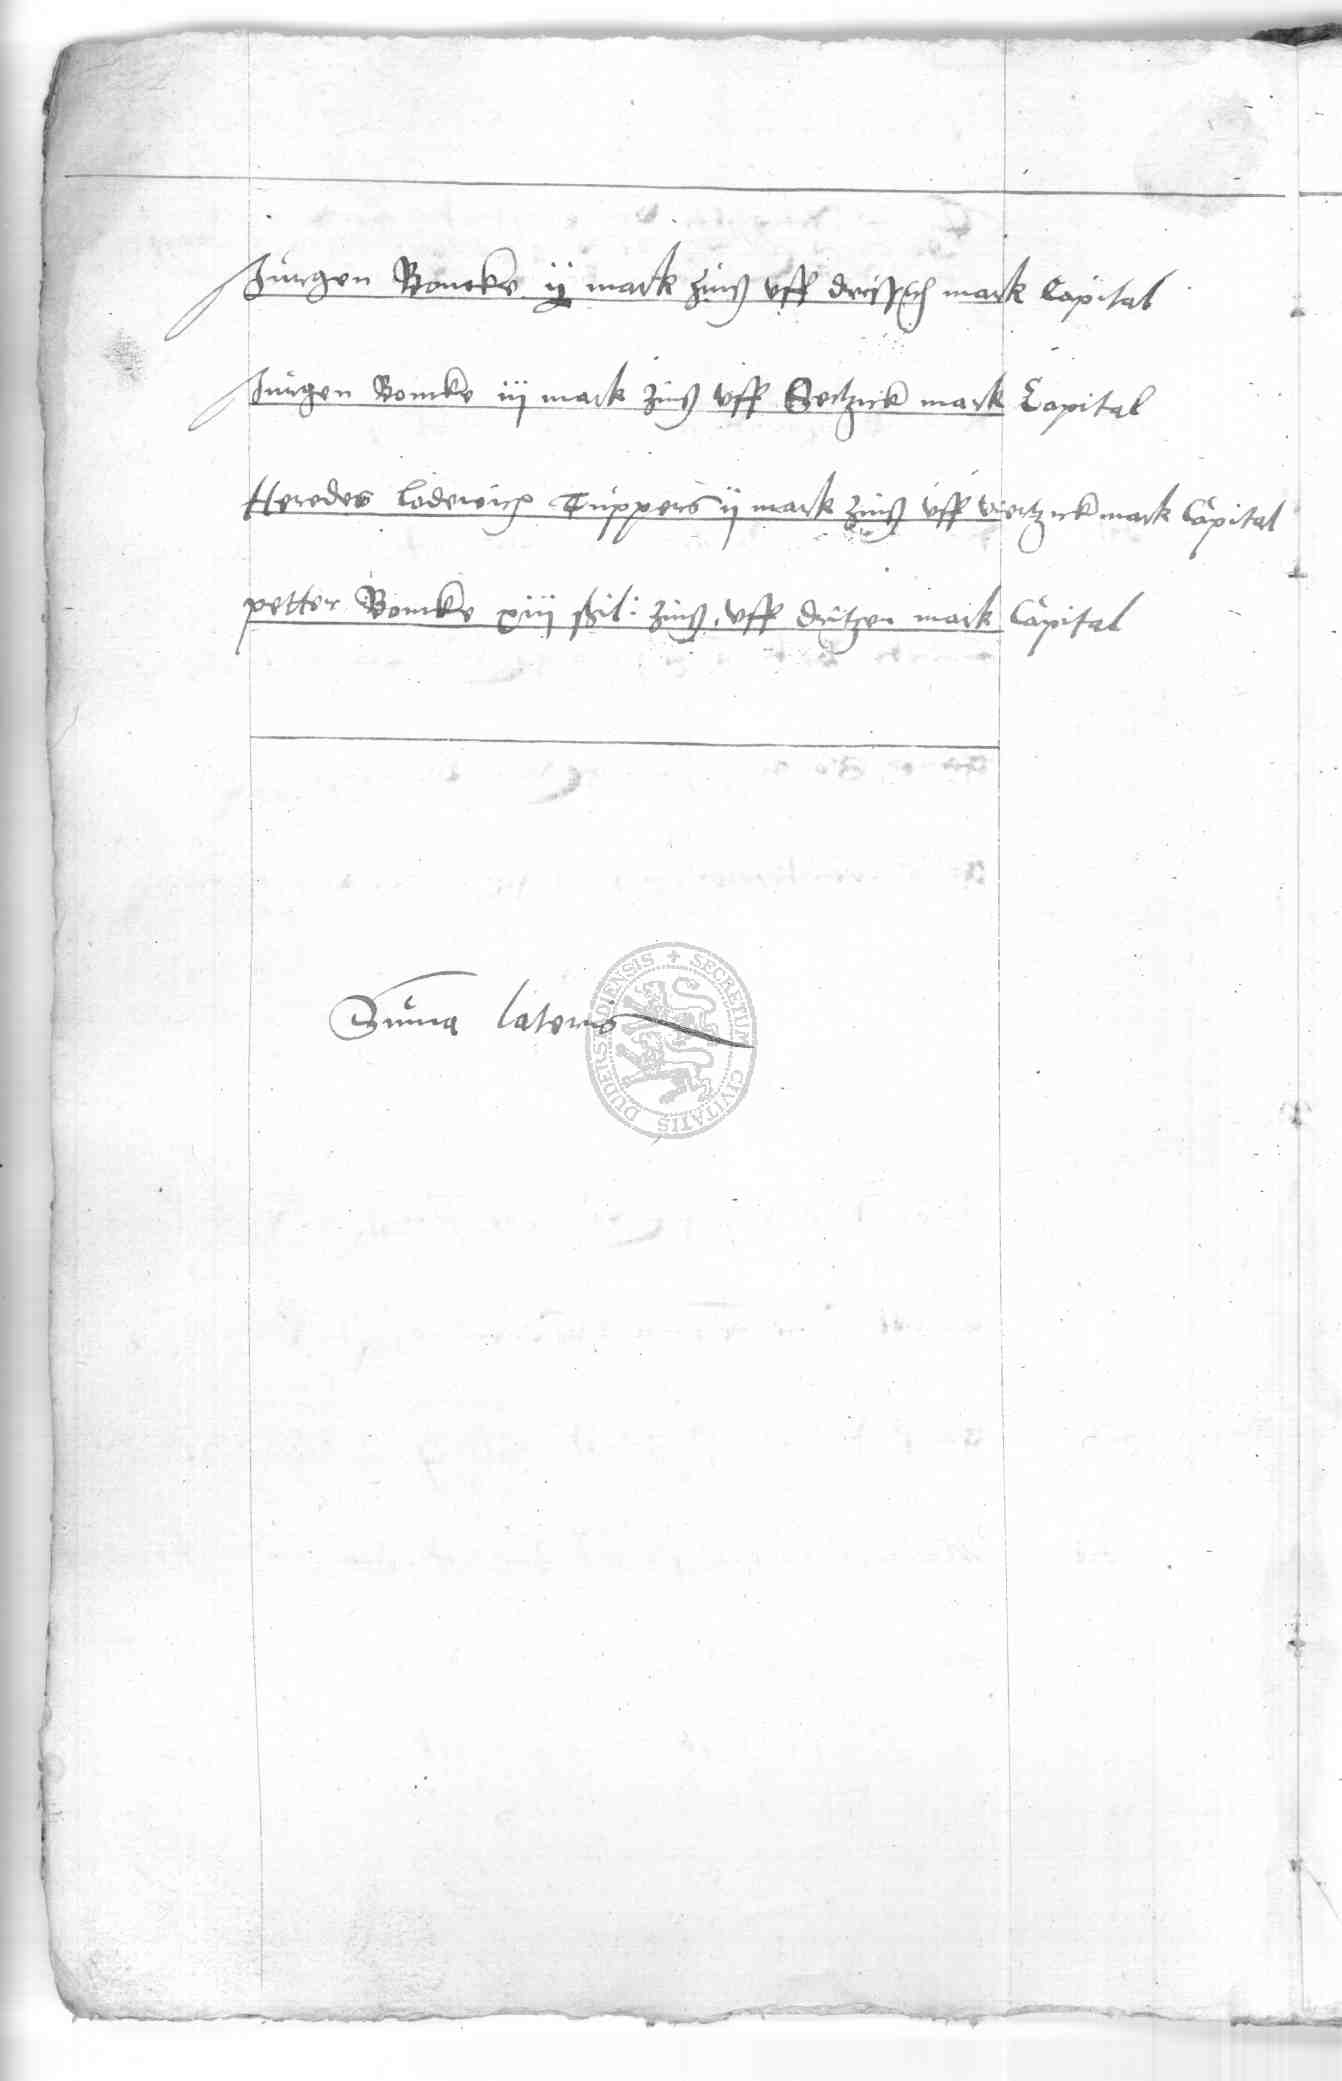 Jurgen Bomeke ij mark zinß uff drissich mark Capital
Jurgen Bomke iij mark zinß uff Sechzick mark Capital
Heredes Loderich Tuppers ij mark zinß uff viertzick mark Capital
petter Bomke xiij ßil: zinß uff dritzen mark Capital
Suma lateris
SECRETUM CIVITATIS DUDERSTADIENSIS